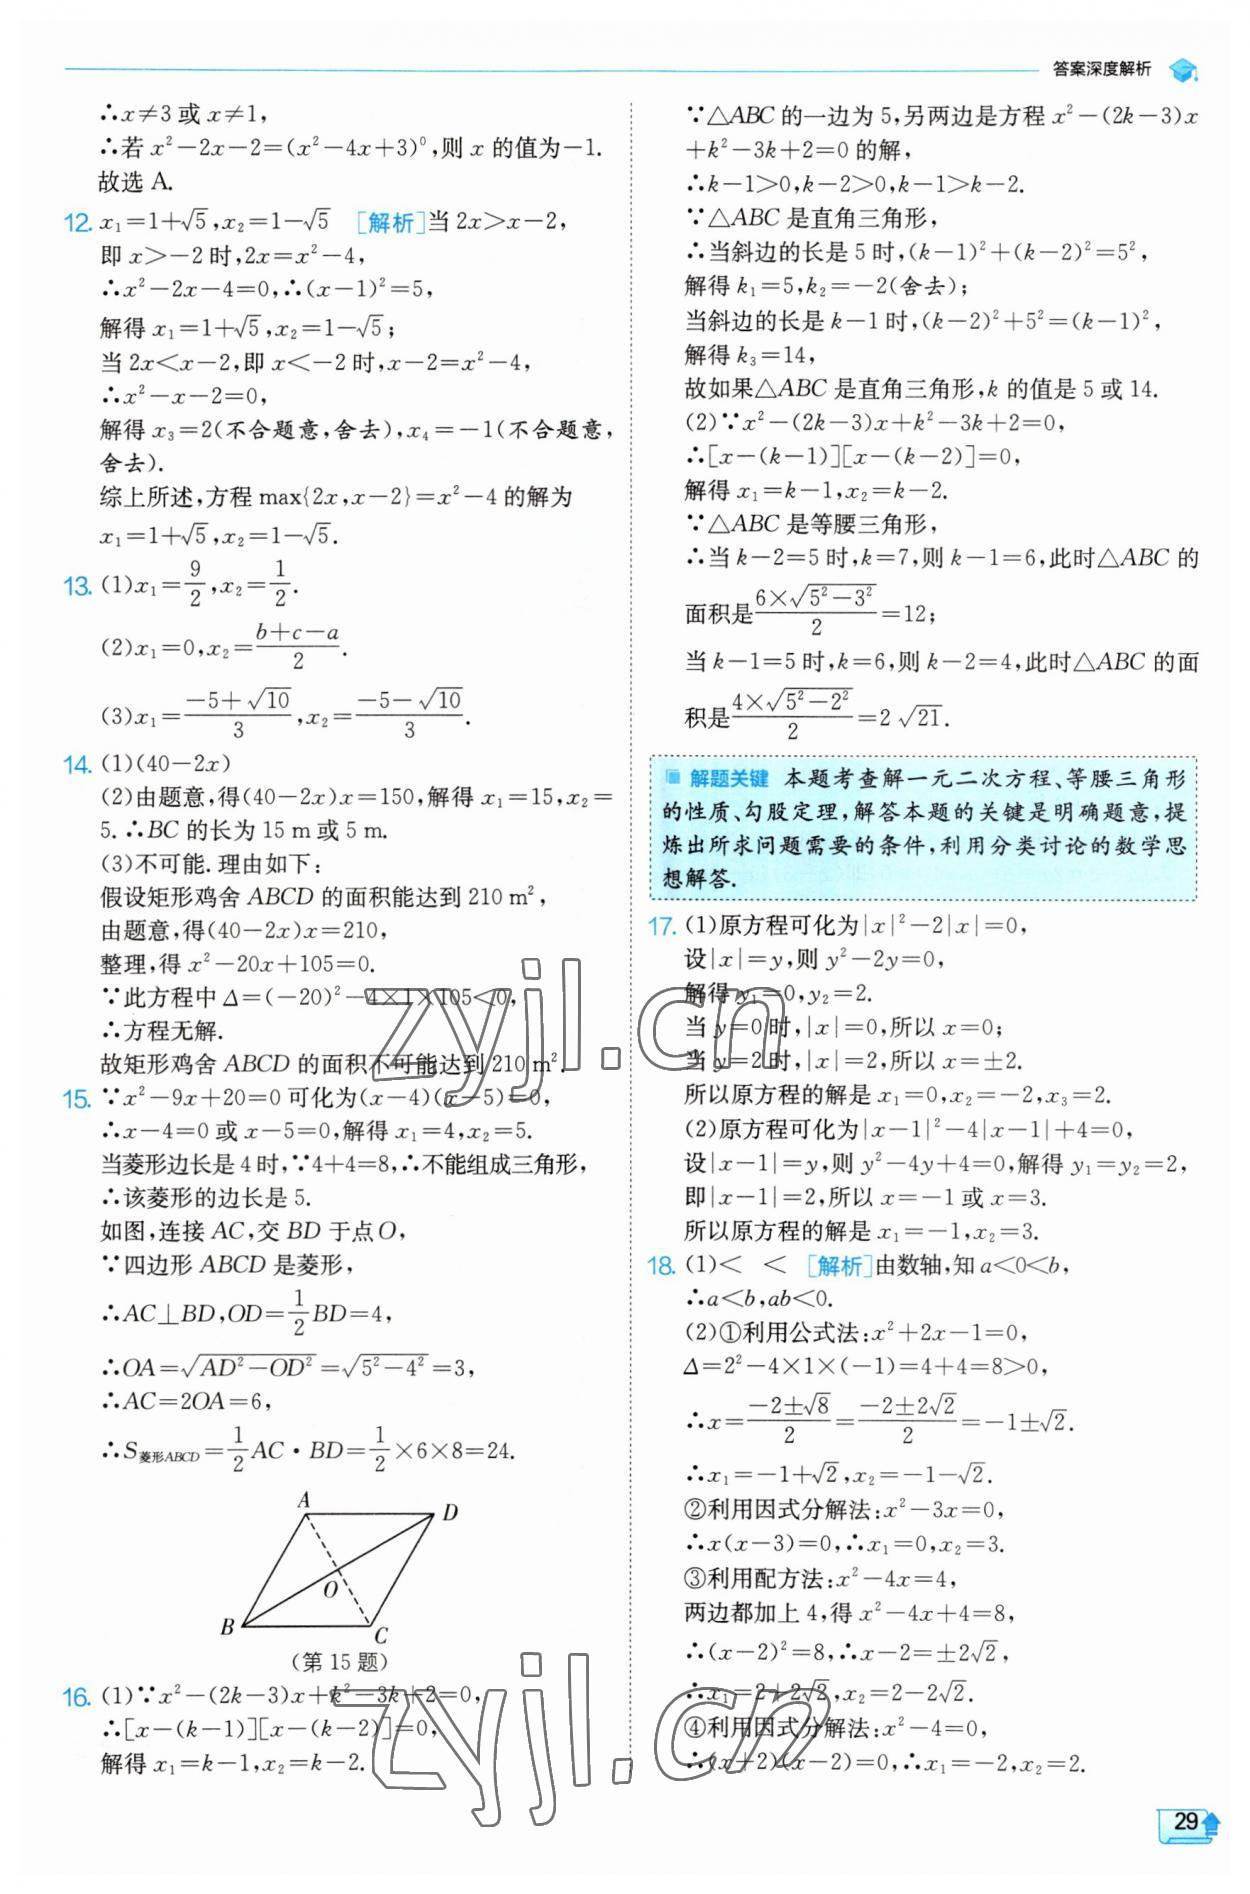 答案深度解析
∴x≠3 或 x≠1,
∴若 x²-2x-2=(x²-4x+3)⁰,则 x 的值为-1.
故选 A.
12. x₁=1+√5,x₂=1-√5 [解析]当 2x>x-2,
即 x>-2 时,2x=x²-4,
∴x²-2x-4=0,∴(x-1)²=5,
解得 x₁=1+√5,x₂=1-√5;
当 2x<x-2,即 x<-2 时,x-2=x²-4,
∴x²-x-2=0,
解得 x₃=2(不合题意,舍去),x₄=-1(不合题意,
舍去).
综上所述,方程 max{2x,x-2}=x²-4 的解为
x₁=1+√5,x₂=1-√5.
13. (1)x₁=9/2,x₂=1/2.
(2)x₁=0,x₂=(b+c-a)/2.
(3)x₁=(-5+√10)/3,x₂=(-5-√10)/3.
14. (1)(40-2x)
(2)由题意,得(40-2x)x=150,解得 x₁=15,x₂=
5. ∴BC 的长为 15 m 或 5 m.
(3)不可能. 理由如下:
假设矩形鸡舍 ABCD 的面积能达到 210 m²,
由题意,得(40-2x)x=210,
整理,得 x²-20x+105=0.
∵此方程中 Δ=(-20)²-4×1×105<0,
∴方程无解.
故矩形鸡舍 ABCD 的面积不可能达到 210 m².
15. ∵x²-9x+20=0 可化为(x-4)(x-5)=0,
∴x-4=0 或 x-5=0,解得 x₁=4,x₂=5.
当菱形边长是 4 时,∵4+4=8,∴不能组成三角形,
∴该菱形的边长是 5.
如图,连接 AC,交 BD 于点 O,
∵四边形 ABCD 是菱形,
∴AC⊥BD,OD=1/2BD=4,
∴OA=√(AD²-OD²)=√(5²-4²)=3,
∴AC=2OA=6,
∴S菱形ABCD=1/2AC·BD=1/2×6×8=24.
A
D
O
B
C
(第 15 题)
16. (1)∵x²-(2k-3)x+k²-3k+2=0,
∴[x-(k-1)][x-(k-2)]=0,
解得 x₁=k-1,x₂=k-2.
∵△ABC 的一边为 5,另两边是方程 x²-(2k-3)x
+k²-3k+2=0 的解,
∴k-1>0,k-2>0,k-1>k-2.
∵△ABC 是直角三角形,
∴当斜边的长是 5 时,(k-1)²+(k-2)²=5²,
解得 k₁=5,k₂=-2(舍去);
当斜边的长是 k-1 时,(k-2)²+5²=(k-1)²,
解得 k₃=14,
故如果△ABC 是直角三角形,k 的值是 5 或 14.
(2)∵x²-(2k-3)x+k²-3k+2=0,
∴[x-(k-1)][x-(k-2)]=0,
解得 x₁=k-1,x₂=k-2.
∵△ABC 是等腰三角形,
∴当 k-2=5 时,k=7,则 k-1=6,此时△ABC 的
面积是(6×√(5²-3²))/2=12;
当 k-1=5 时,k=6,则 k-2=4,此时△ABC 的面
积是(4×√(5²-2²))/2=2√21.
解题关键 本题考查解一元二次方程、等腰三角形
的性质、勾股定理,解答本题的关键是明确题意,提
炼出所求问题需要的条件,利用分类讨论的数学思
想解答.
17. (1)原方程可化为|x|²-2|x|=0,
设|x|=y,则 y²-2y=0,
解得 y₁=0,y₂=2.
当 y=0 时,|x|=0,所以 x=0;
当 y=2 时,|x|=2,所以 x=±2.
所以原方程的解是 x₁=0,x₂=-2,x₃=2.
(2)原方程可化为|x-1|²-4|x-1|+4=0,
设|x-1|=y,则 y²-4y+4=0,解得 y₁=y₂=2,
即|x-1|=2,所以 x=-1 或 x=3.
所以原方程的解是 x₁=-1,x₂=3.
18. (1)< < [解析]由数轴,知 a<0<b,
∴a<b,ab<0.
(2)①利用公式法:x²+2x-1=0,
Δ=2²-4×1×(-1)=4+4=8>0,
∴x=(-2±√8)/2=(-2±2√2)/2=-1±√2.
∴x₁=-1+√2,x₂=-1-√2.
②利用因式分解法:x²-3x=0,
∴x(x-3)=0,∴x₁=0,x₂=3.
③利用配方法:x²-4x=4,
两边都加上 4,得 x²-4x+4=8,
∴(x-2)²=8,∴x-2=±2√2,
∴x₁=2+2√2,x₂=2-2√2.
④利用因式分解法:x²-4=0,
∴(x+2)(x-2)=0,∴x₁=-2,x₂=2.
29
zyjl.cn
zyjl.cn